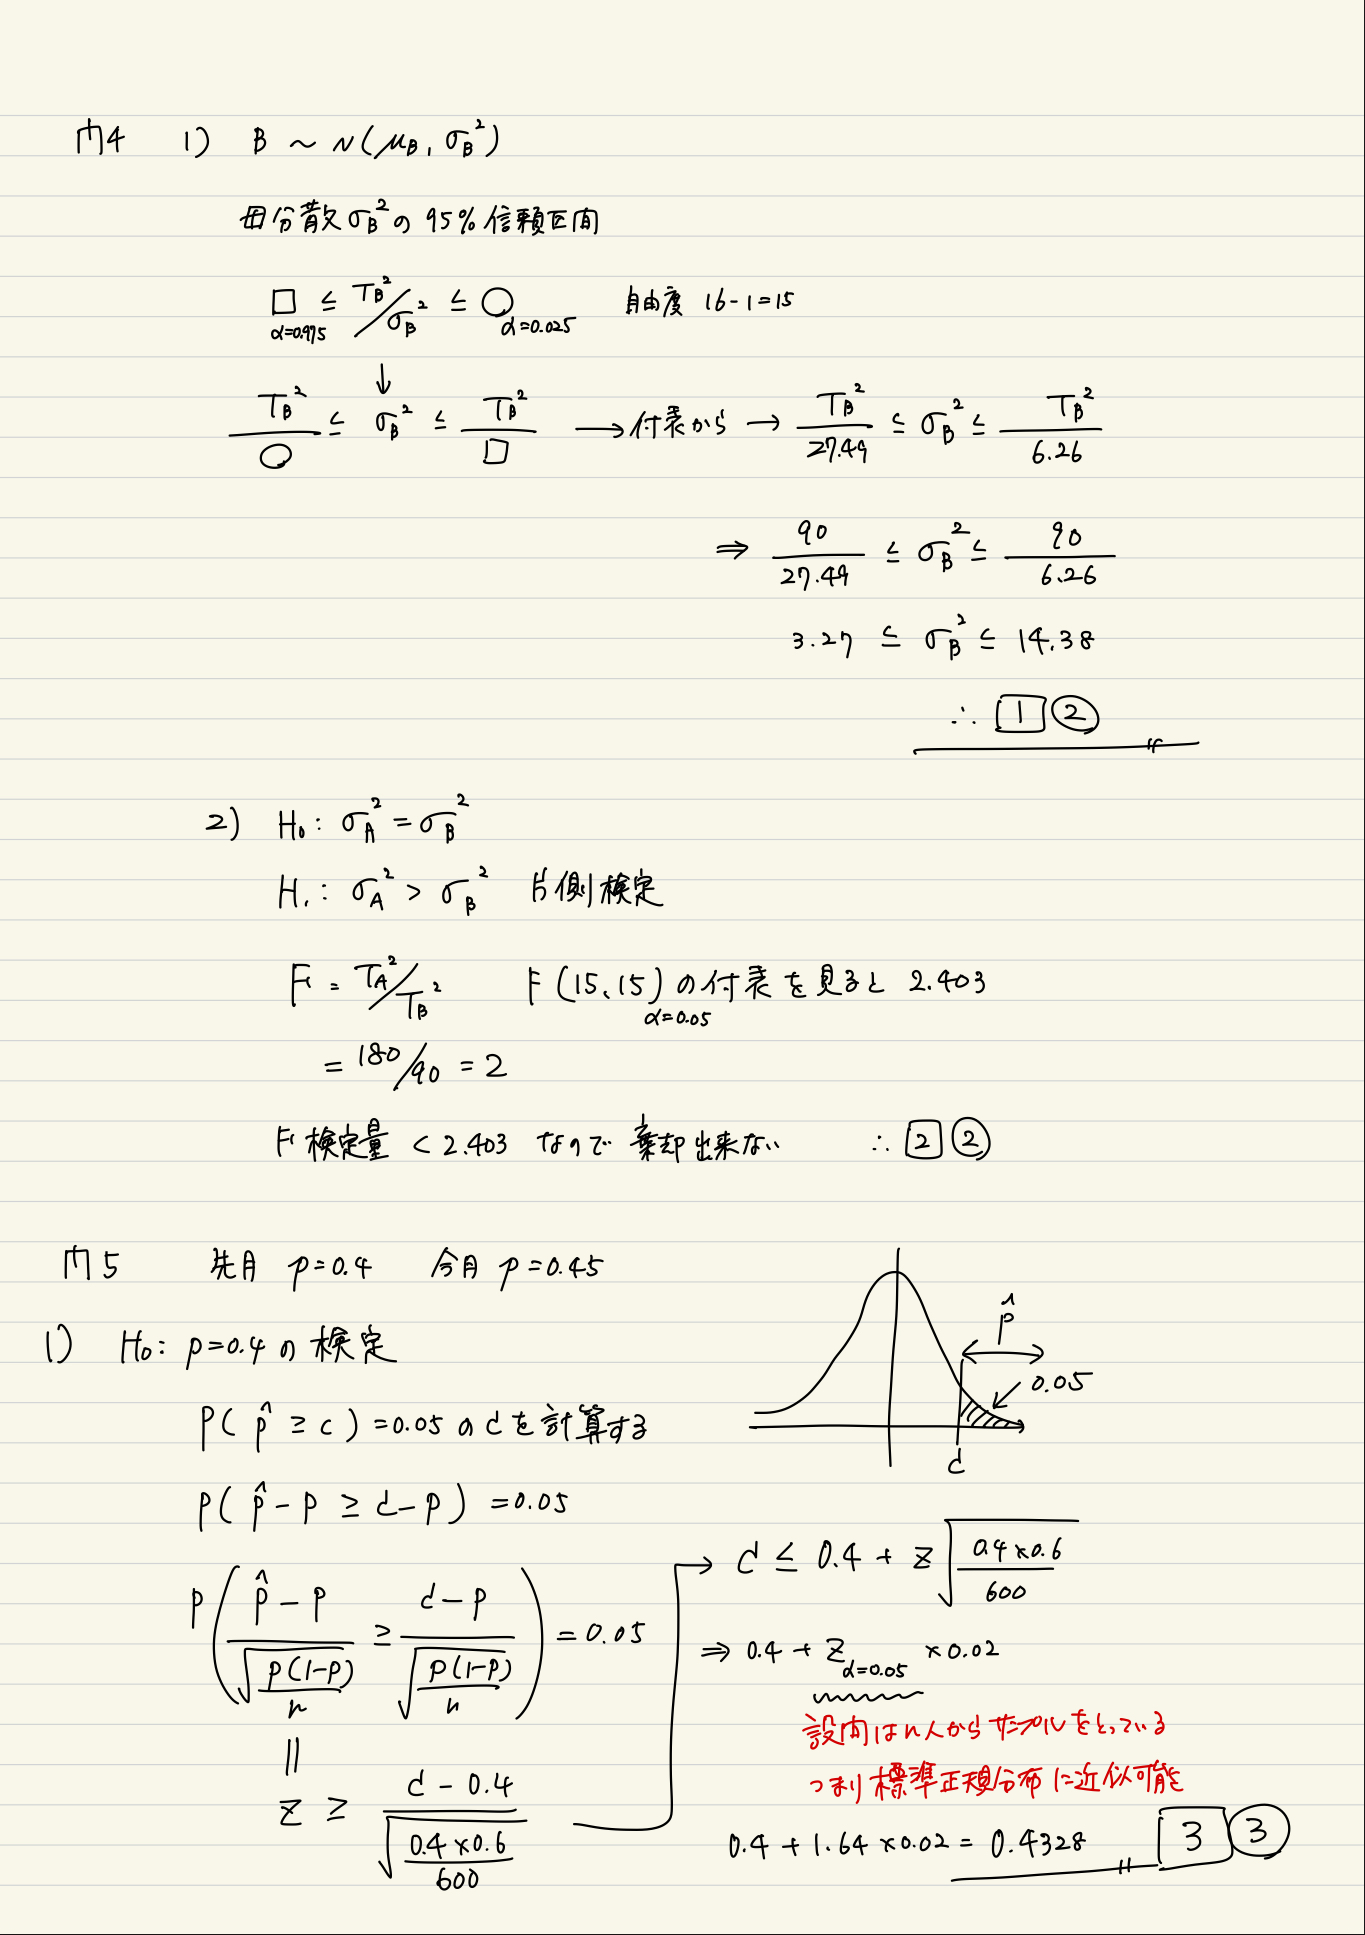 問4 1) B ~ N(μB, σB²)
母分散σB²の95%信頼区間
□ ≤ TB²/σB² ≤ ○ 自由度 16-1=15
α=0.975 α=0.025
↓
TB²/○ ≤ σB² ≤ TB²/□ → 付表から → TB²/27.49 ≤ σB² ≤ TB²/6.26
⇒ 90/27.49 ≤ σB² ≤ 90/6.26
3.27 ≤ σB² ≤ 14.38
∴ 1 ②
2) H₀: σA² = σB²
H₁: σA² > σB² 片側検定
F = TA²/TB² F(15,15)の付表を見ると 2.403
α=0.05
= 180/90 = 2
F検定量 < 2.403 なので 棄却出来ない ∴ 2 ②
問5 先月 p=0.4 今月 p=0.45
1) H₀: p=0.4の検定
p̂
0.05
c
P(p̂ ≥ c) = 0.05 のcを計算する
P(p̂-p ≥ c-p) = 0.05
P((p̂-p)/√(p(1-p)/n) ≥ (c-p)/√(p(1-p)/n)) = 0.05
||
z ≥ (c-0.4)/√(0.4×0.6/600)
→ c ≤ 0.4 + z√(0.4×0.6/600)
⇒ 0.4 + z α=0.05 ×0.02
設問はn人からサンプルをとっている
つまり標準正規分布に近似可能
0.4 + 1.64 ×0.02 = 0.4328 3 ③